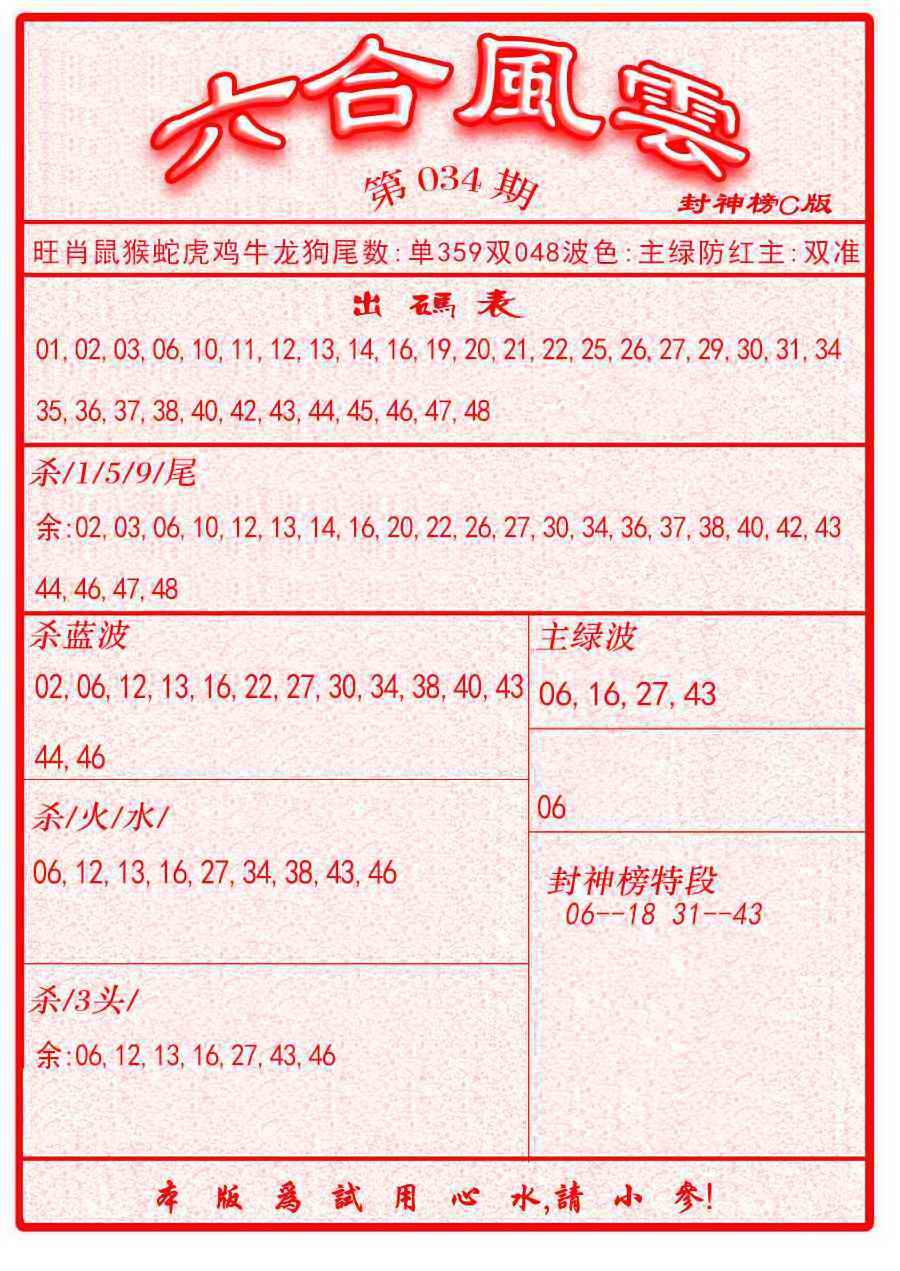 六合風雲
第034期
封神榜C版
旺肖鼠猴蛇虎鸡牛龙狗尾数:单359双048波色:主绿防红主:双准
出碼表
01,02,03,06,10,11,12,13,14,16,19,20,21,22,25,26,27,29,30,31,34
35,36,37,38,40,42,43,44,45,46,47,48
杀/1/5/9/尾
余:02,03,06,10,12,13,14,16,20,22,26,27,30,34,36,37,38,40,42,43
44,46,47,48
杀蓝波
02,06,12,13,16,22,27,30,34,38,40,43
44,46
主绿波
06,16,27,43
06
杀/火/水/
06,12,13,16,27,34,38,43,46
封神榜特段
06--18 31--43
杀/3头/
余:06,12,13,16,27,43,46
本版爲試用心水,請小參!